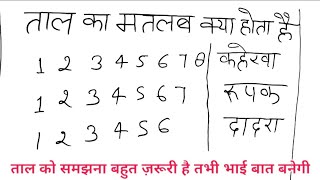 ताल का मतलब क्या होता है
1 2 3 4 5 6 7 8 कहेरवा
1 2 3 4 5 6 7 रूपक
1 2 3 4 5 6 दादरा
ताल को समझना बहुत ज़रूरी है तभी भाई बात बनेगी